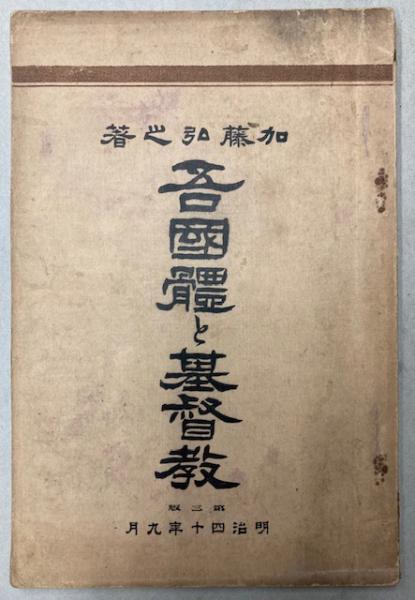 加藤弘之著
吾國體と基督教
第三版
明治四十年九月